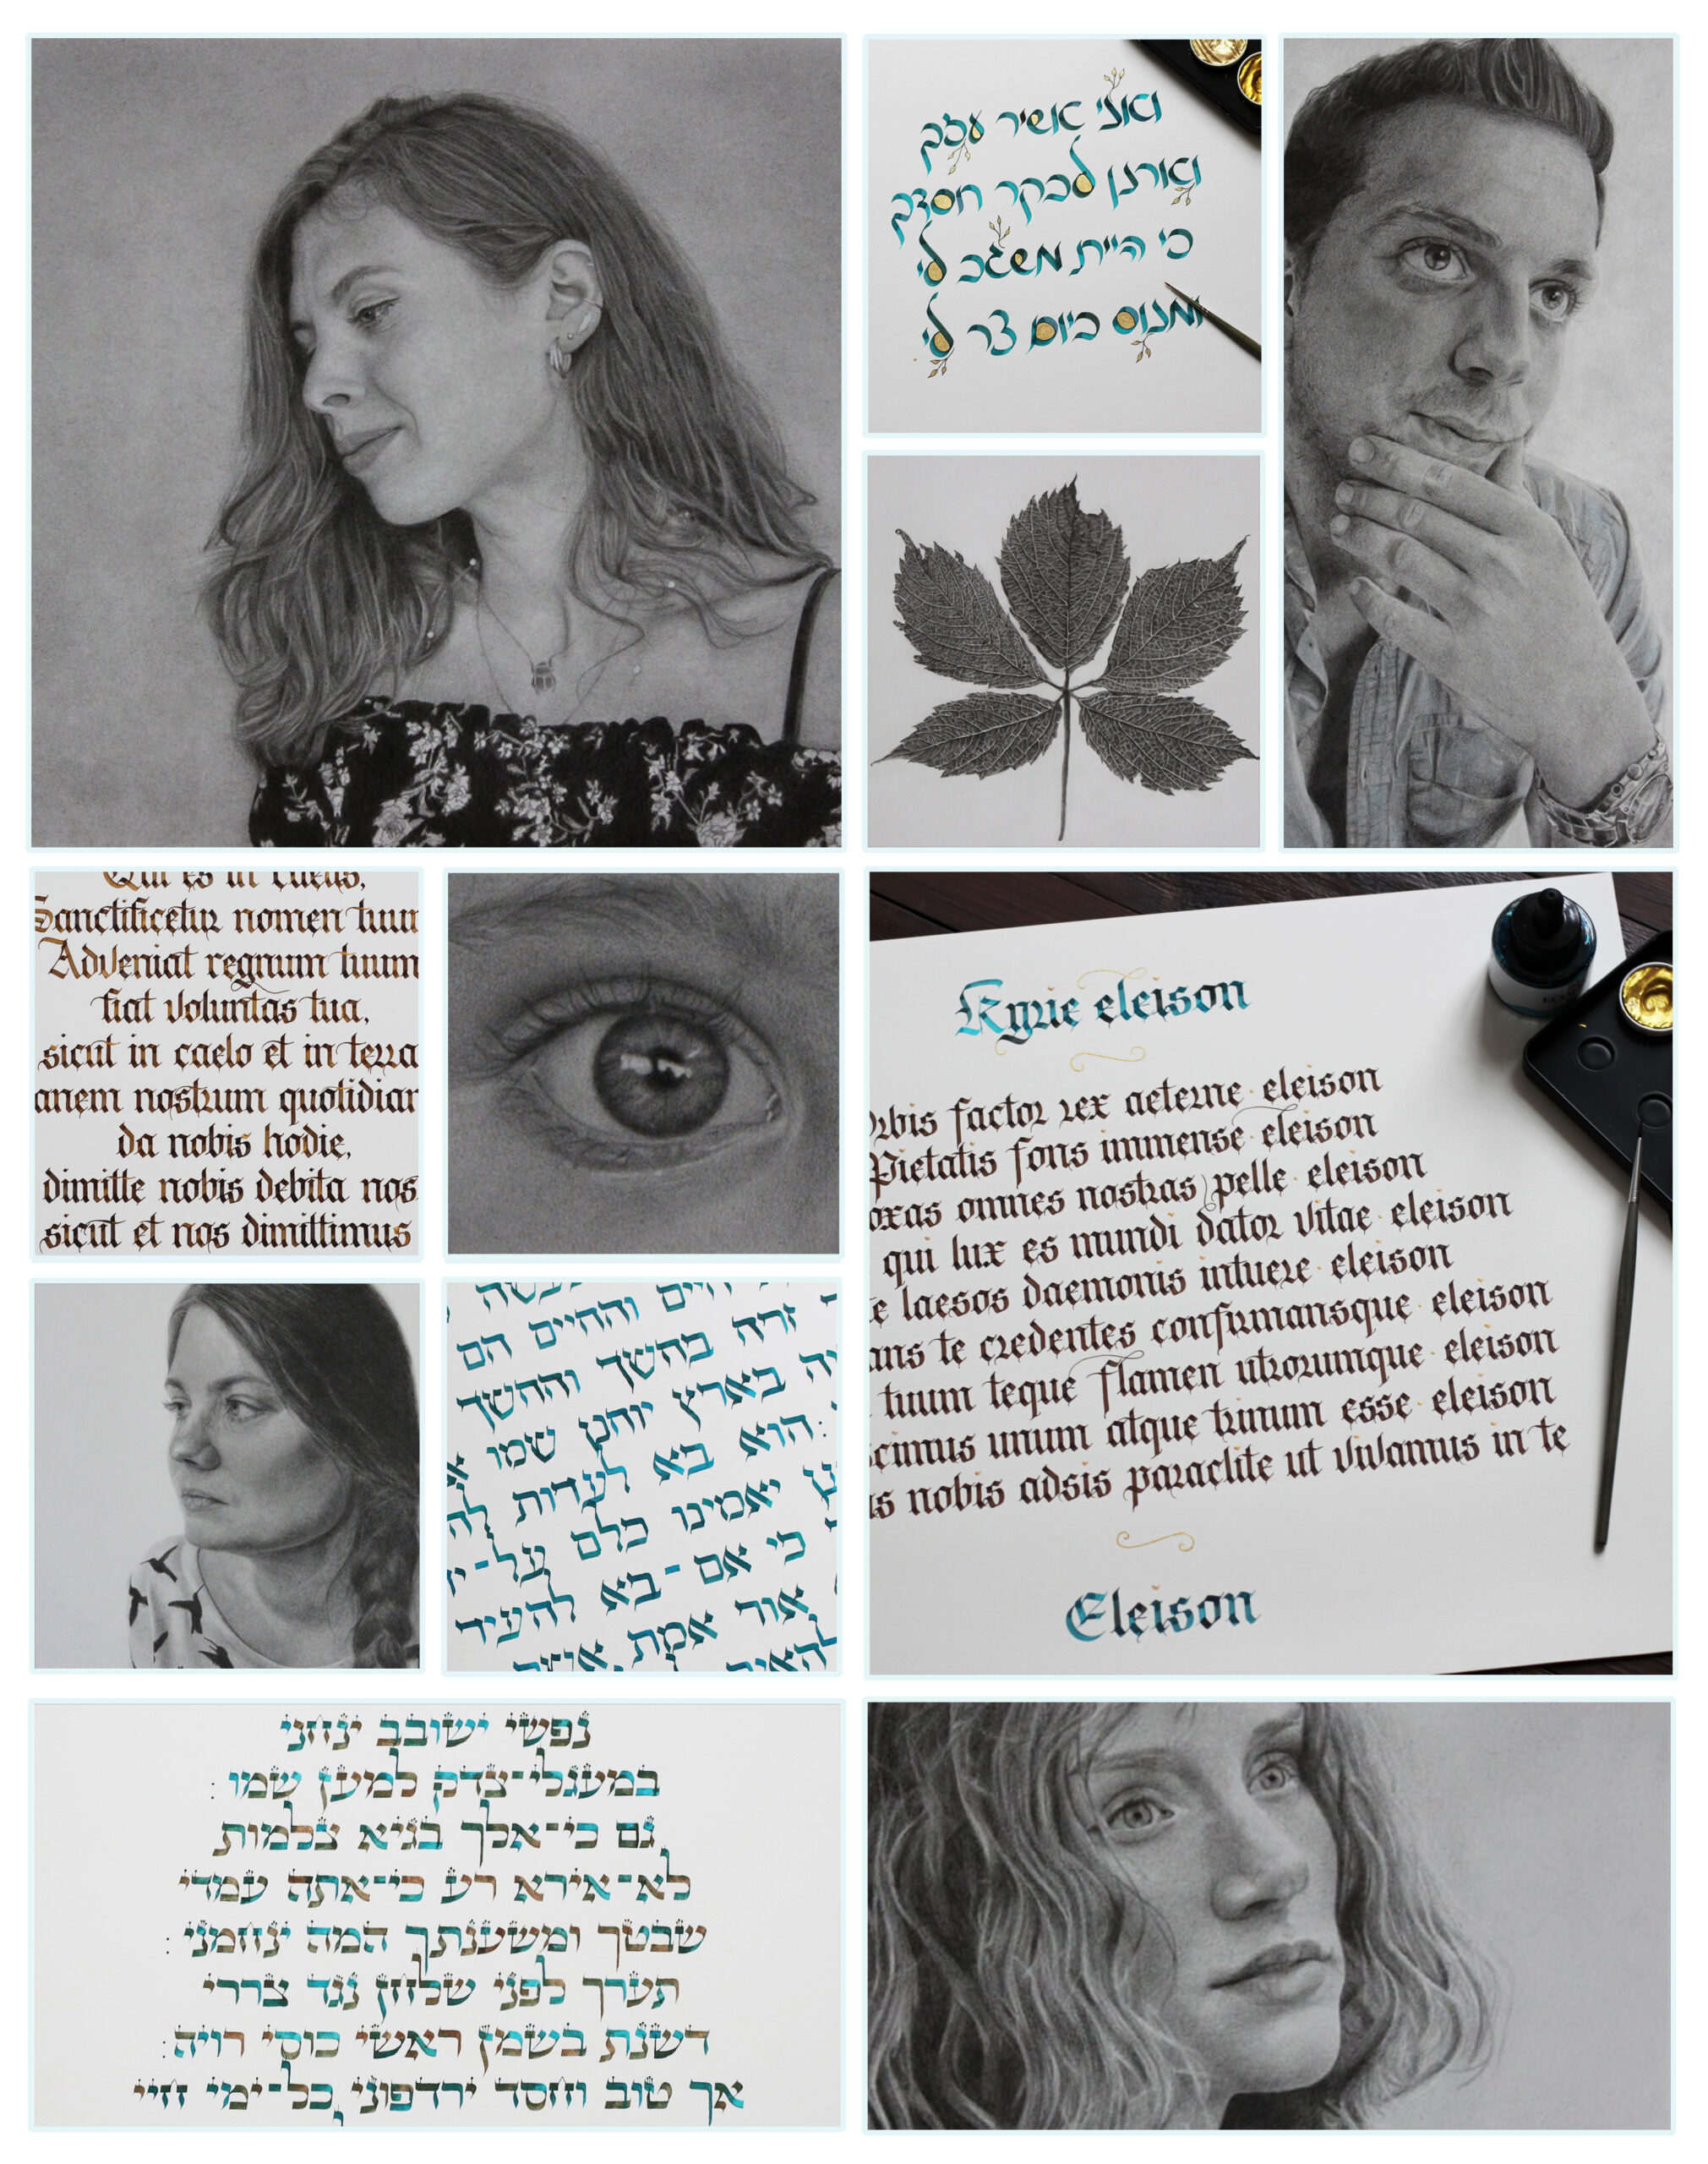 ואני אשיר עזך
וארנן לבקר חסדך
כי היית משגב לי
ומנוס ביום צר לי
Qui es in caelis,
Sanctificetur nomen tuum
Adveniat regnum tuum
fiat voluntas tua,
sicut in caelo et in terra
anem nostrum quotidian
da nobis hodie,
dimitte nobis debita nos
sicut et nos dimittimus
Kyrie eleison
Orbis factor rex aeterne · eleison
Pietatis fons immense · eleison
oxas omnes nostras pelle · eleison
qui lux es mundi dator vitae · eleison
e laesos daemonis intuere · eleison
ans te credentes confirmansque · eleison
tuum teque flamen utrorumque · eleison
scimus unum atque trinum esse · eleison
is nobis adsis paraclite ut vivamus in te
Eleison
חיים והחיים הם
זרח בחשך והחשך
בארץ יוחנן שמו
הוא בא לעדות
יאמינו כלם על-
כי אם-בא להעיד
אור אמת אשר
נפשי ישובב ינחני
במעגלי־צדק למען שמו:
גם כי־אלך בגיא צלמות
לא־אירא רע כי־אתה עמדי
שבטך ומשענתך המה ינחמני:
תערך לפני שלחן נגד צררי
דשנת בשמן ראשי כוסי רויה:
אך טוב וחסד ירדפוני כל־ימי חיי